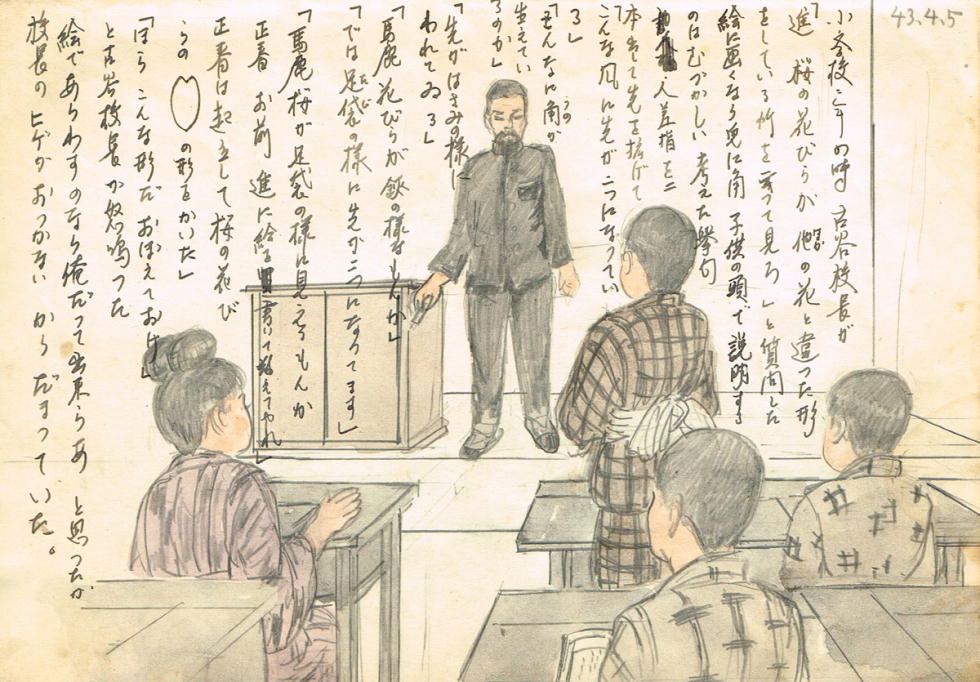 43.4.5
小学校二年の時 古谷校長が
「進 桜の花びらが 他の花と違った形
をしている 竹を…って見ろ」と質問した
絵に画くなら兎に角 子供の頭で説明する
のはむづかしい 考えた挙句
人差指を二
本出して先を拡げて
「こんな風に先が二つになってい
る」
「そんなに角が
生えてい
るのか」
「先がはさみの様に
われてゐる」
「馬鹿 花びらが鋏の様なもんか」
「では足袋の様に先が二つになってます」
「馬鹿 桜が足袋の様に見えるもんか
正春 お前 進に絵書いて教えてやれ」
正春は起立して桜の花び
らの の形をかいた」
「ほら こんな形だ おぼえておけ」
と古谷校長が怒鳴った
絵であらわすのなら俺だって出来らあ と思ったが
校長のヒゲがおっかないからだまっていた。